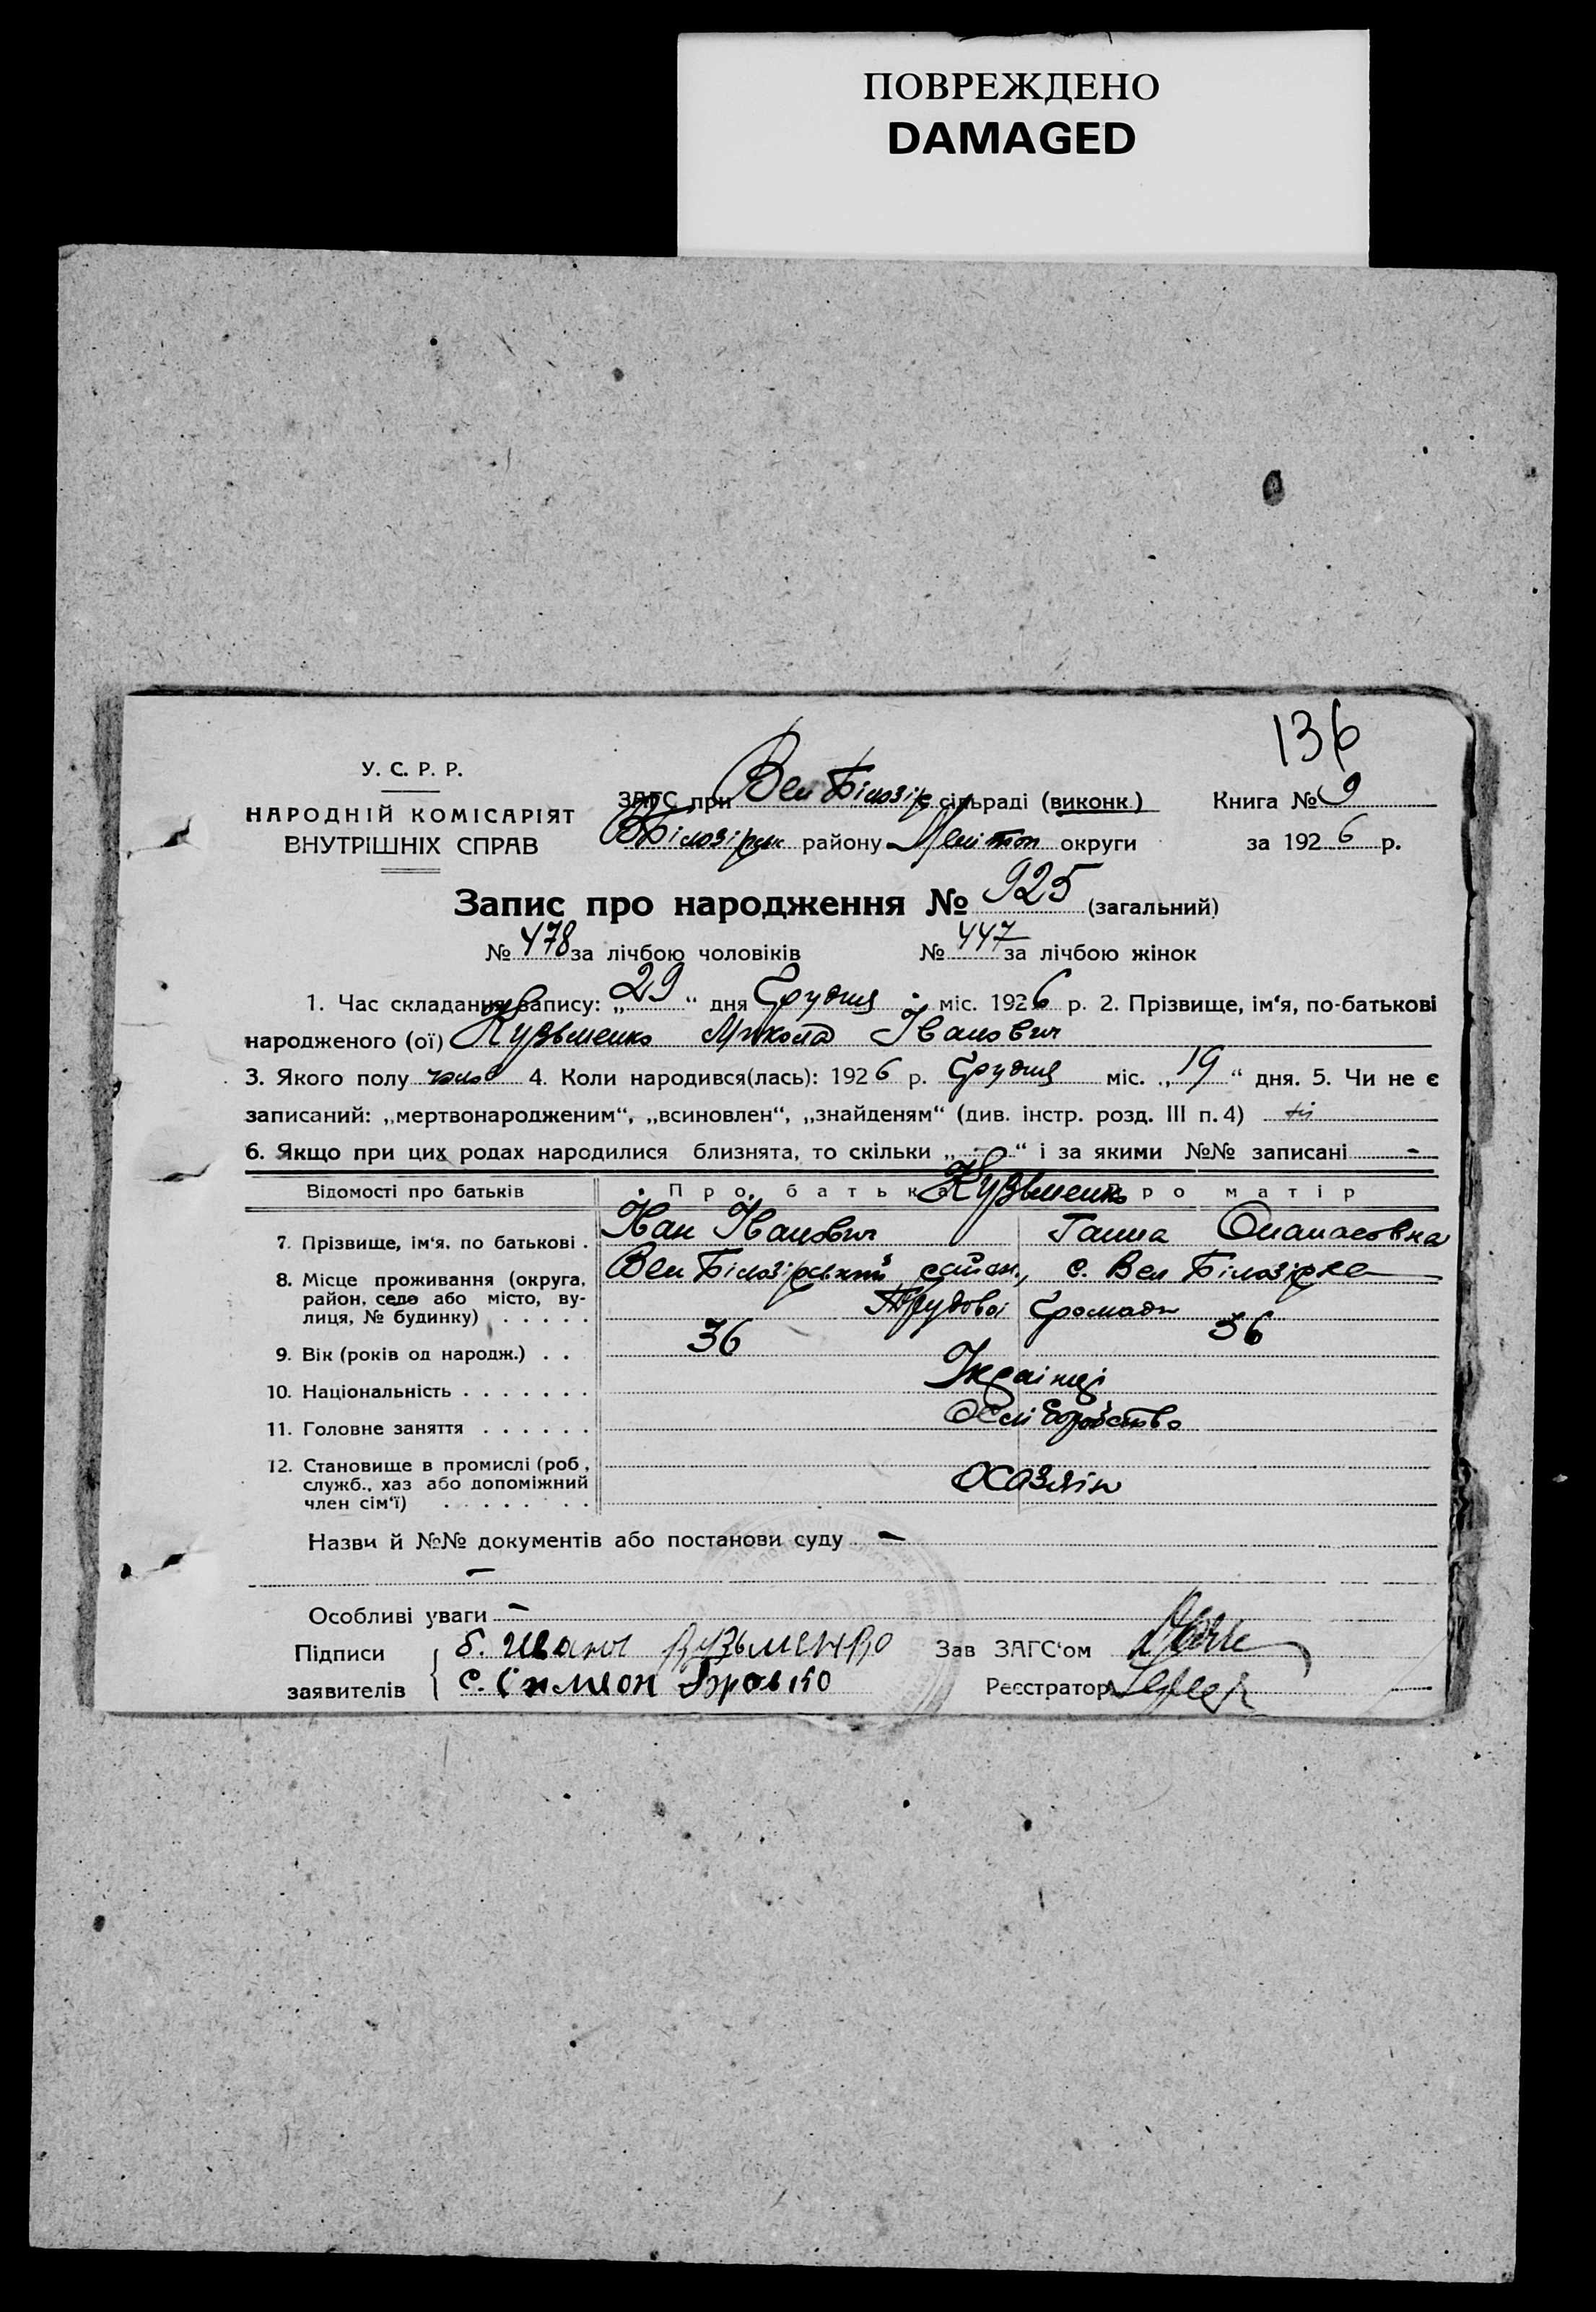 ПОВРЕЖДЕНО
DAMAGED
136
У. С. Р. Р.
НАРОДНІЙ КОМІСАРІЯТ
ВНУТРІШНІХ СПРАВ
ЗАГС при Вел Білозір сільраді (виконк.)
ВБілозірськ району Мелітоп округи
Книга № 9
за 1926 р.
Запис про народження № 925 (загальний)
№ 478 за лічбою чоловіків № 447 за лічбою жінок
1. Час складання запису: „29“ дня Грудня міс. 1926 р. 2. Прізвище, ім‘я, по-батькові
народженого (ої) Кузьменко Микола Іванович
3. Якого полу чолов 4. Коли народився(лась): 1926 р. Грудня міс. „19“ дня. 5. Чи не є
записаний: „мертвонародженим“, „всиновлен“, „знайденям“ (див. інстр. розд. III п. 4) ні
6. Якщо при цих родах народилися близнята, то скільки „-“ і за якими №№ записані -
Відомості про батьків Про батька Про матір
Кузьменко
7. Прізвище, ім‘я, по батькові . Іван Іванович Ганна Опанасовна
8. Місце проживання (округа, Вел Білозірський район, с. Вел Білозірка
район, село або місто, ву-
лиця, № будинку) . . . . . Трудової Громади
9. Вік (років од народж.) . . 36 36
10. Національність . . . . . . . Українці
11. Головне заняття . . . . . . Хліборобство
12. Становище в промислі (роб.,
служб., хаз або допоміжний Хазяїн
член сім‘ї) . . . . . . . .
Назви й №№ документів або постанови суду -
-
Особливі уваги -
Підписи
заявителів
б. Иван Кузьменко
с. Симион
Зав ЗАГС‘ом
Реєстратор